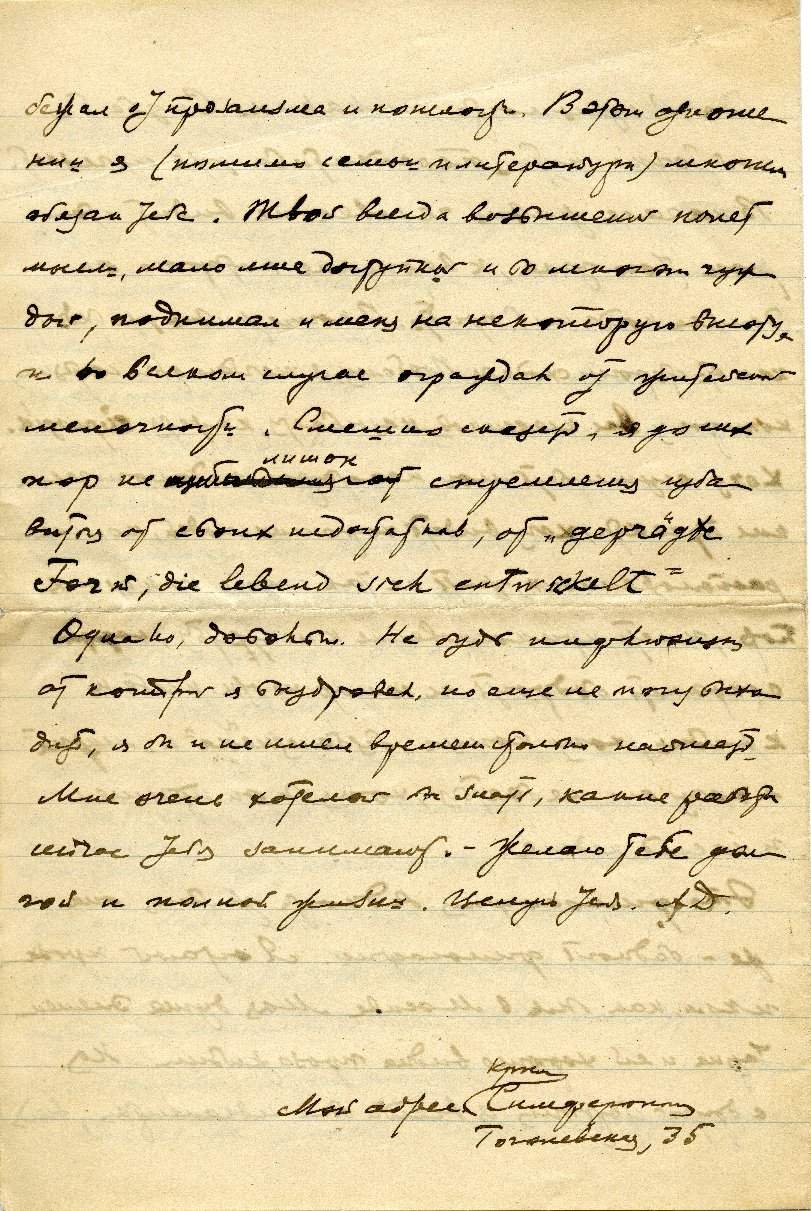 бежал от прозаизма и пошлости. В этом отноше
нии я (помимо семьи и литературы) многим
обязан тебе. Твой всегда возвышенный полет
мысли, мало мне доступный и во многом чуж
дый, поднимал и меня на некоторую высоту,
и во всяком случае ограждал от житейской
мелочности. Смешно сказать, я до сих
пор не лишен стремления изба
виться от своих недостатков, от „geprägte
Form, die lebend sich entwickelt“
Однако, довольно. Не будь инфлюэнцы
от которой я выздоровел, но еще не могу выхо
дить, я бы и не имел времени столько написать.
Мне очень хотелось бы знать, какие работы
сейчас тебя занимают. – Желаю тебе дол
гой и полной жизни. Целую тебя. АД.
Крым
Мой адрес Симферополь
Гоголевская, 35